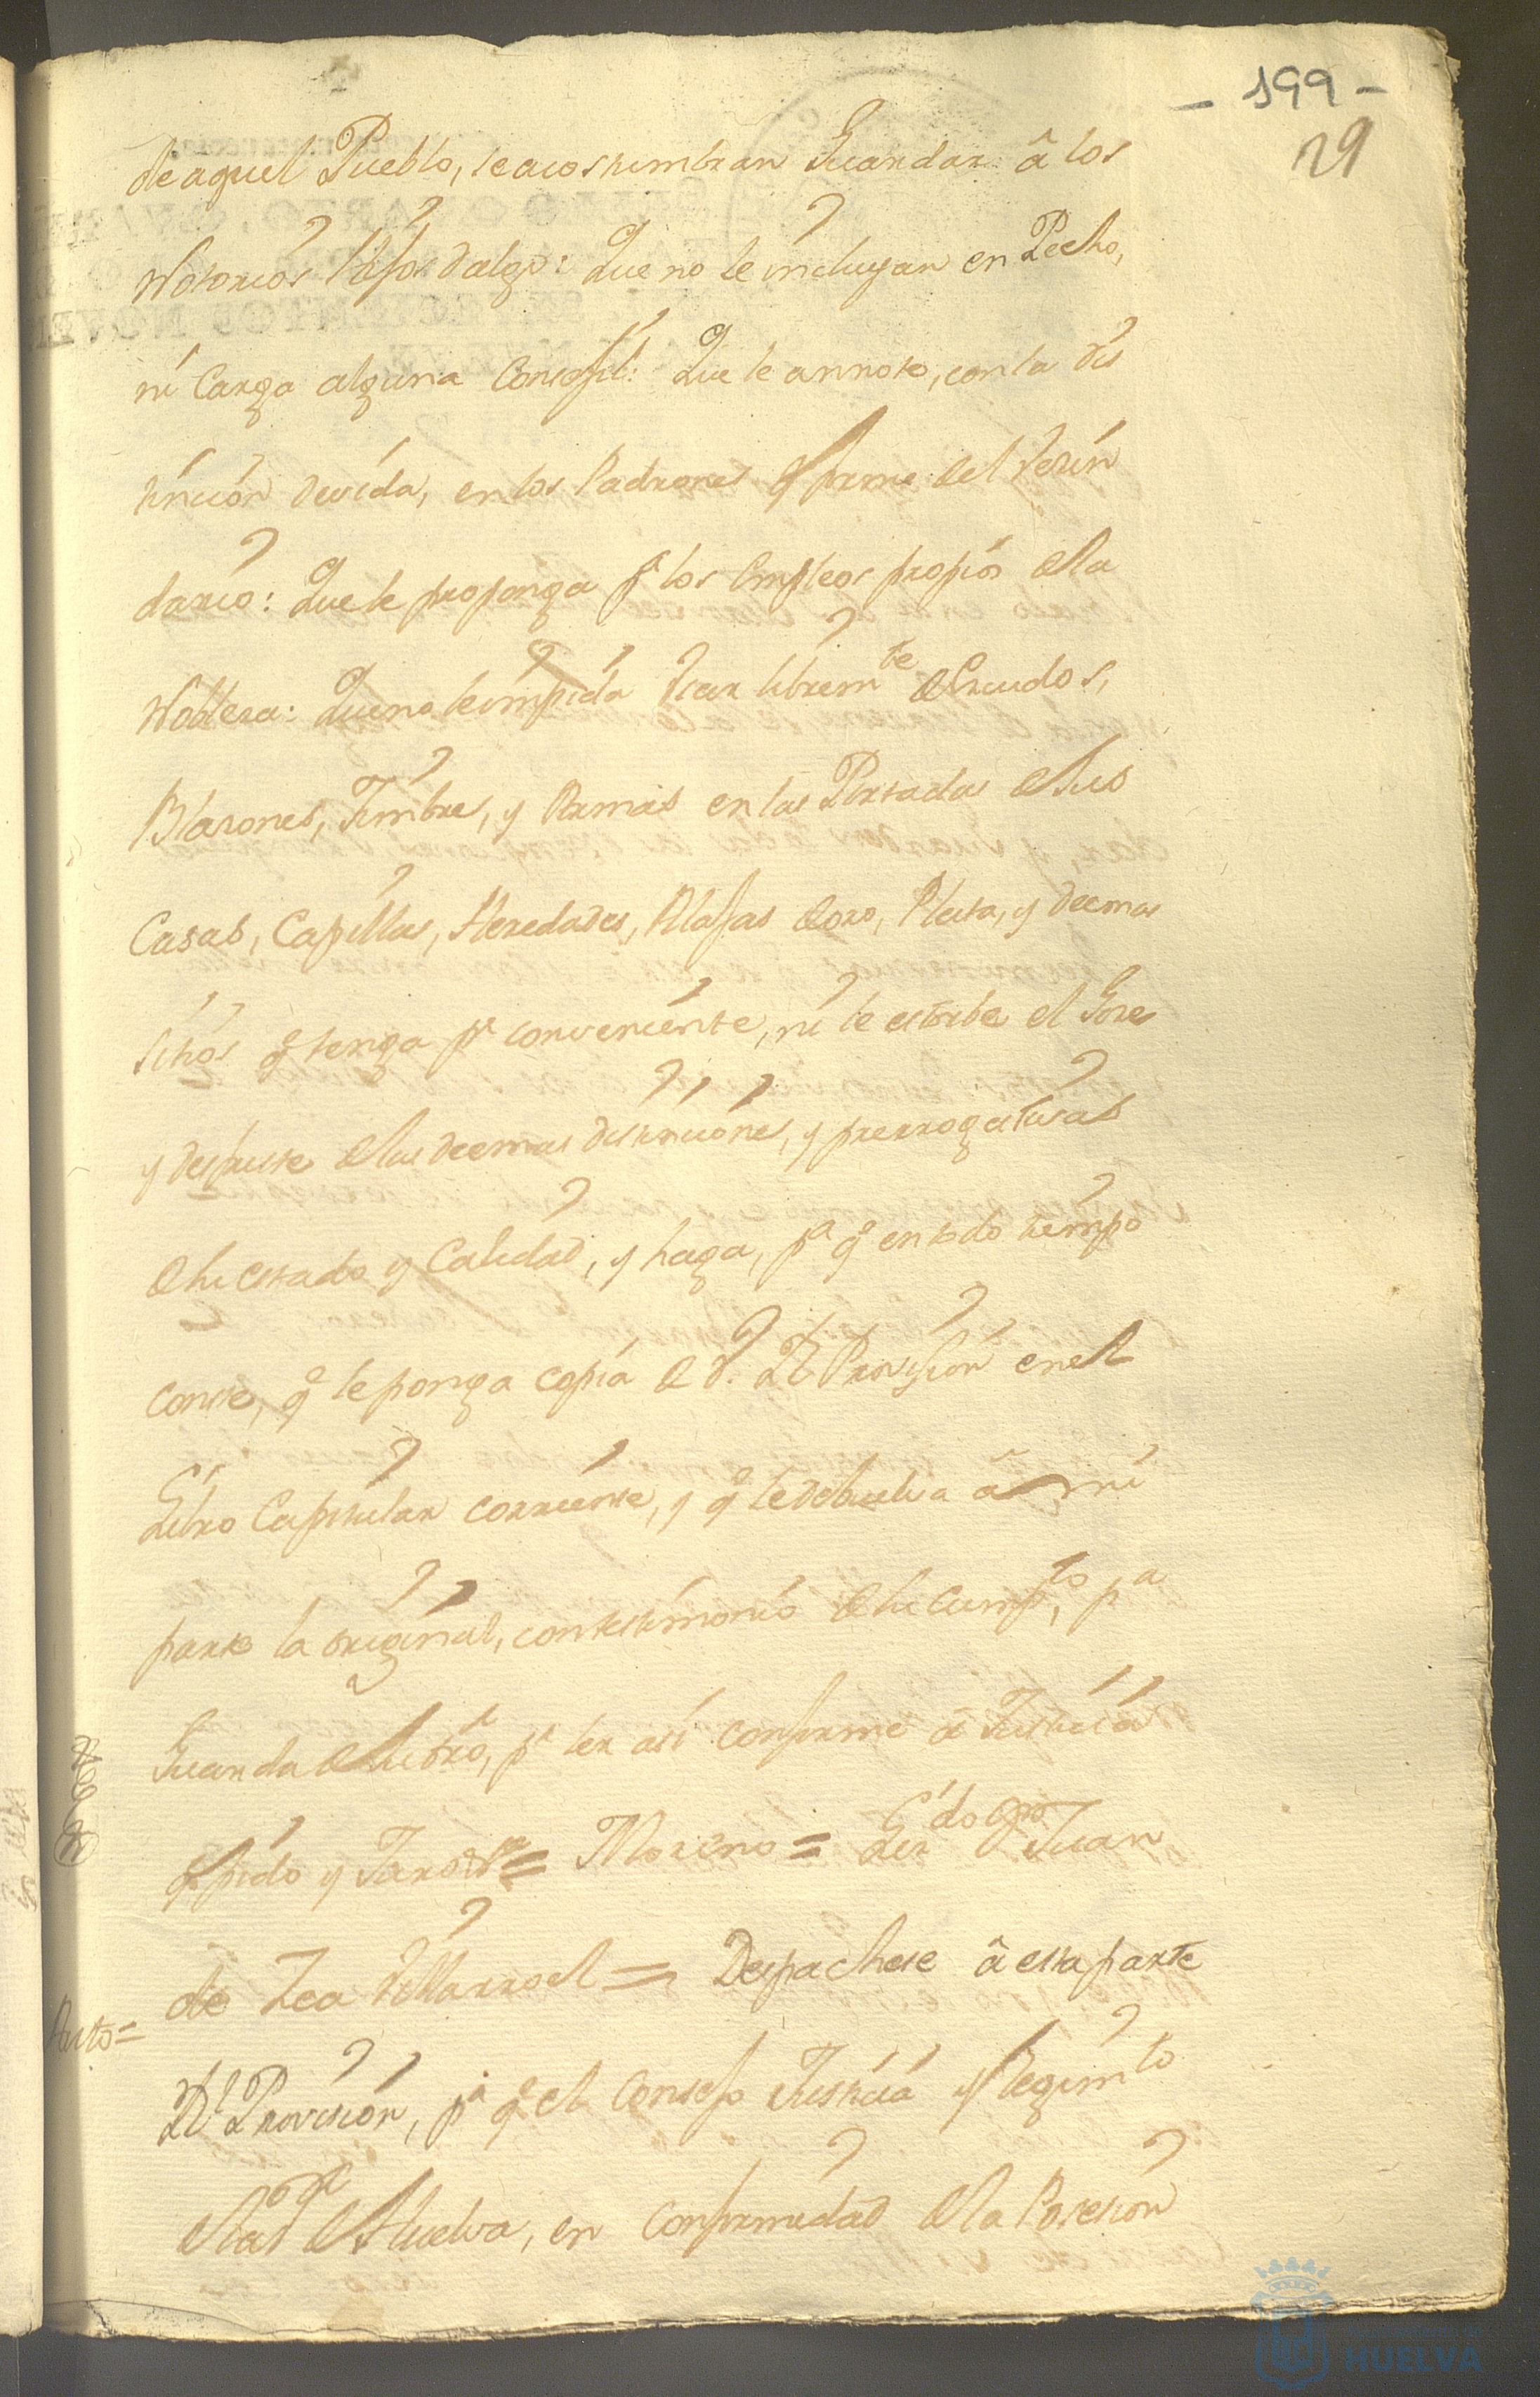 - 199 -
29
de aquel Pueblo, se acostumbran Guardar â los
Notorios Hijos dalgo: Que no le incluyan en Pecho,
ni Carga alguna Consejil: Que le annote, con la dis
tinción devida, en los Padrones q forme del Vecin
dario: Que le proponga pª los empleos propios de la
Nobleza: Que no le impida Usar librem.te de Escudos,
Blazones, Timbres, y Armas en las Portadas de sus
Casas, Capillas, Heredades, Alajas de oro, Plata, y demas
sitios q tenga pr conveniente, ni le estorbe el Goze
y disfrute de las demas distinciones, y prerrogativas
de su estado y Calidad, y haga, pª q en todo tiempo
conste, q se ponga copia de d. Rl Provision en el
Libro Capitular corriente, y q se debuelva â mi
parte la original, con testimonio de su cumpto, pª
Guarda de su dro, pr ser así conforme â Justicia
q pido y = Moreno = Licdo Dn Juan
de Zea Villarroel = Despachese â esta parte
Auto=
Rl Provision, pª q el Consejo Justicia y Regimto
de la Vª de Huelva, en conformidad de la Posesion
HUELVA